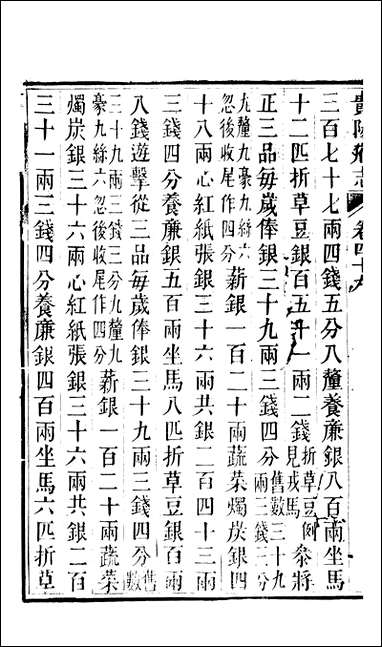 貴陽府志 卷四十
三百七十七兩四錢五分八釐養亷銀八百兩坐馬
十二匹折草豆銀百五十一兩二錢折草豆例見戎馬叅將
正三品每歲俸銀三十九兩三錢四分舊數三十九兩三錢三分
九釐九豪九絲六忽後收尾作四分薪銀一百二十兩蔬菜燭炭銀四
十八兩心紅紙張銀三十六兩共銀二百四十三兩
三錢四分養亷銀五百兩坐馬八匹折草豆銀百兩
八錢遊擊從三品每歲俸銀三十九兩三錢四分舊數
三十九兩三錢三分九釐九豪九絲六忽後收尾作四分薪銀一百二十兩蔬菜
燭炭銀三十六兩心紅紙張銀三十六兩共銀二百
三十一兩三錢四分養亷銀四百兩坐馬六匹折草